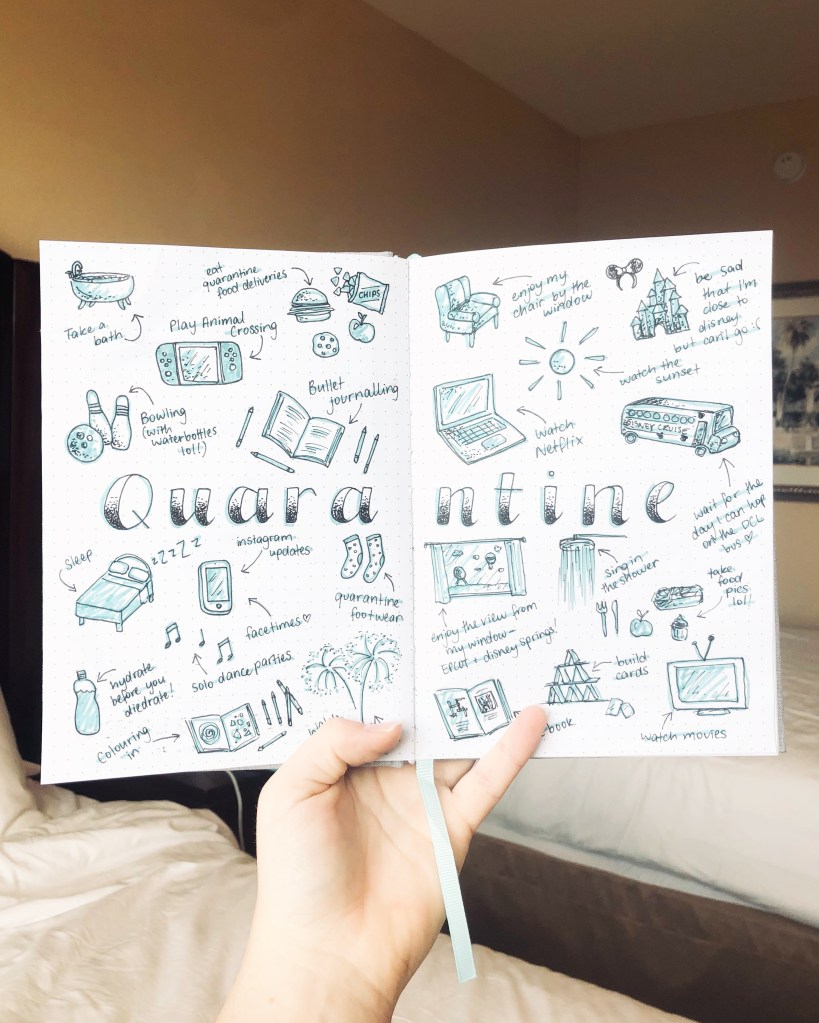 eat
quarantine
food deliveries
CHIPS
Take a
bath
Play Animal
Crossing
Bowling
(with
waterbottles
lol!)
Bullet
journalling
enjoy my
chair by the
window
be sad
that i'm
close to
disney
but can't go :(
watch the
sunset
watch
Netflix
DISNEY CRUISE
wait for the
day I can hop
on the DCL
bus ♡
Quarantine
sleep
zzzzz
instagram
updates
facetimes♡
quarantine
footwear
hydrate
before you
diedrate!
solo dance parties
Colouring
in
enjoy the view from
my window -
EPCOT + disney springs!
sing in
the shower
take
food
pics
lol!
build
cards
book
watch movies